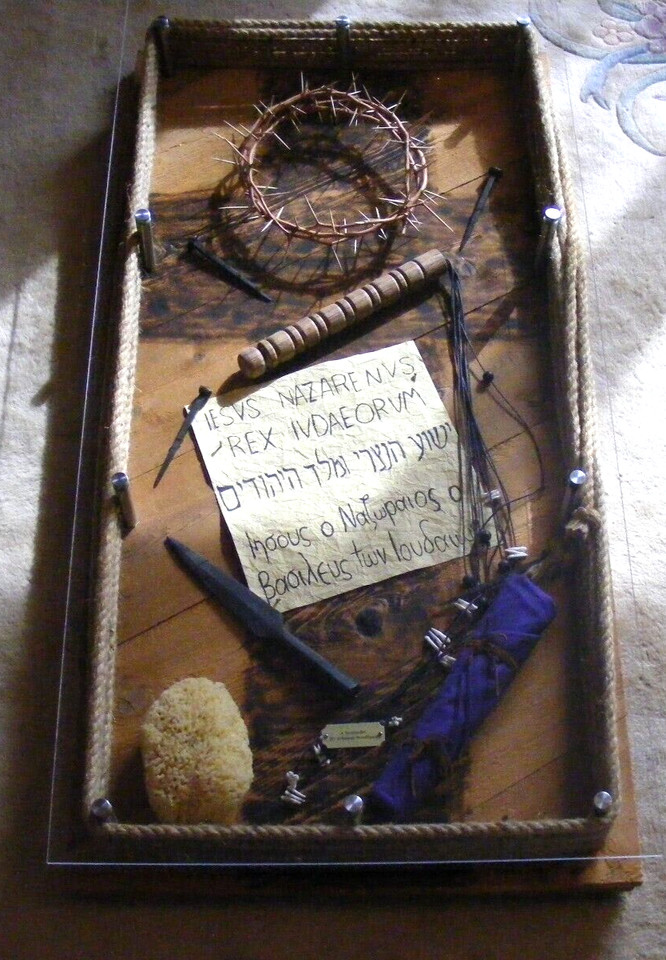 IESVS NAZARENVS
REX IVDAEORVM
ישוע הנצרי ומלך היהודים
Ιησους ο Ναζωραιος ο
βασιλευς των Ιουδαιων